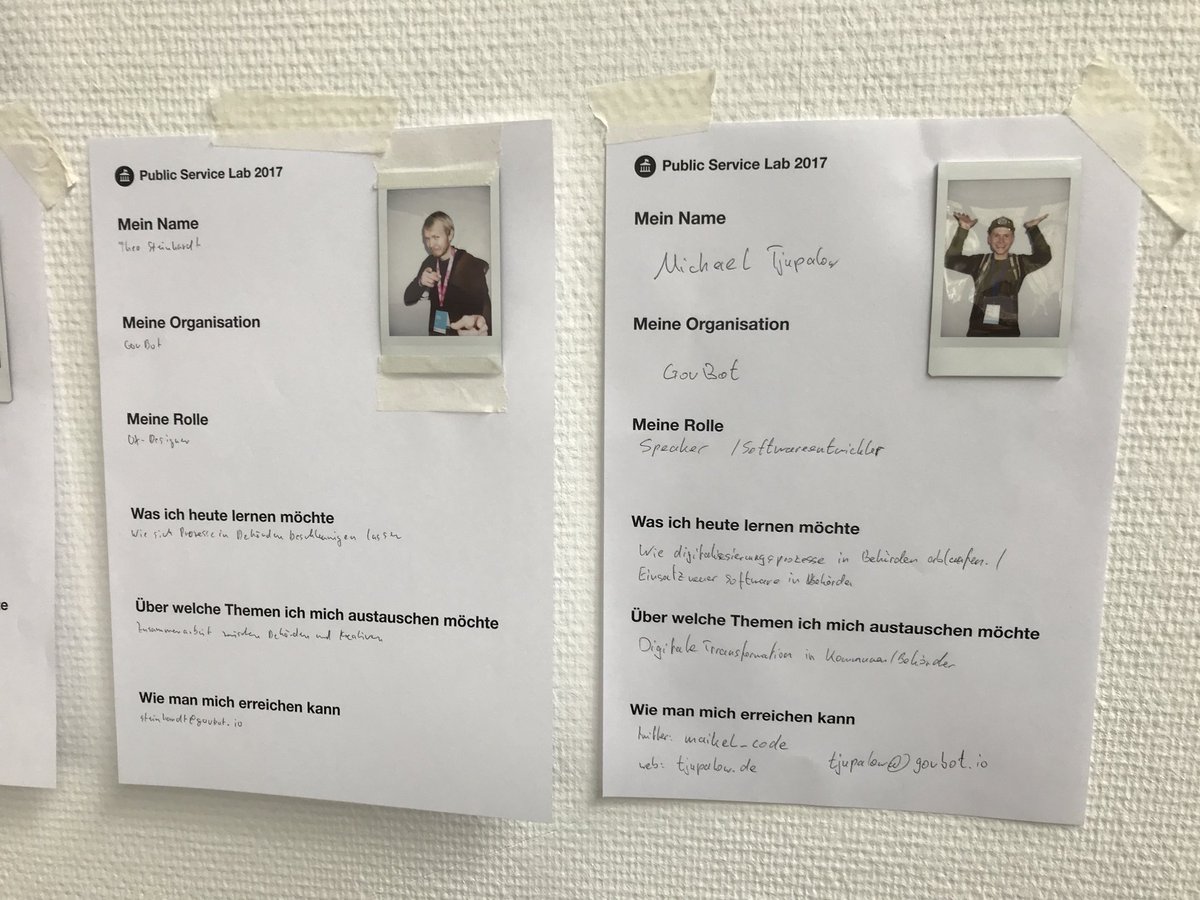 Public Service Lab 2017
Mein Name
Theo Steinhardt
Meine Organisation
GovBot
Meine Rolle
UX-Designer
Was ich heute lernen möchte
Wie sich Prozesse in Behörden beschleunigen lassen
Über welche Themen ich mich austauschen möchte
Zusammenarbeit zwischen Behörden und Kreativen
Wie man mich erreichen kann
steinhardt@govbot.io
Public Service Lab 2017
Mein Name
Michael Tjupalow
Meine Organisation
GovBot
Meine Rolle
Speaker /Softwareentwickler
Was ich heute lernen möchte
Wie digitalisierungsprozesse in Behörden ablaufen. /
Einsatz neuer Software in Behörden
Über welche Themen ich mich austauschen möchte
Digitale Transformation in Kommunen/Behörden
Wie man mich erreichen kann
twitter: maikel_code
web: tjupalow.de tjupalow@govbot.io
e